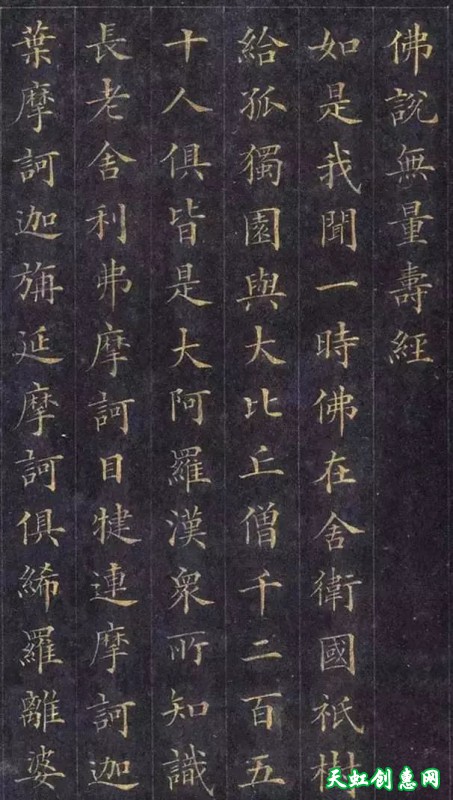 佛說無量壽經
如是我聞一時佛在舍衛國祇樹
給孤獨園與大比丘僧千二百五
十人俱皆是大阿羅漢衆所知識
長老舍利弗摩訶目犍連摩訶迦
葉摩訶迦旃延摩訶俱絺羅離婆
天虹创惠网